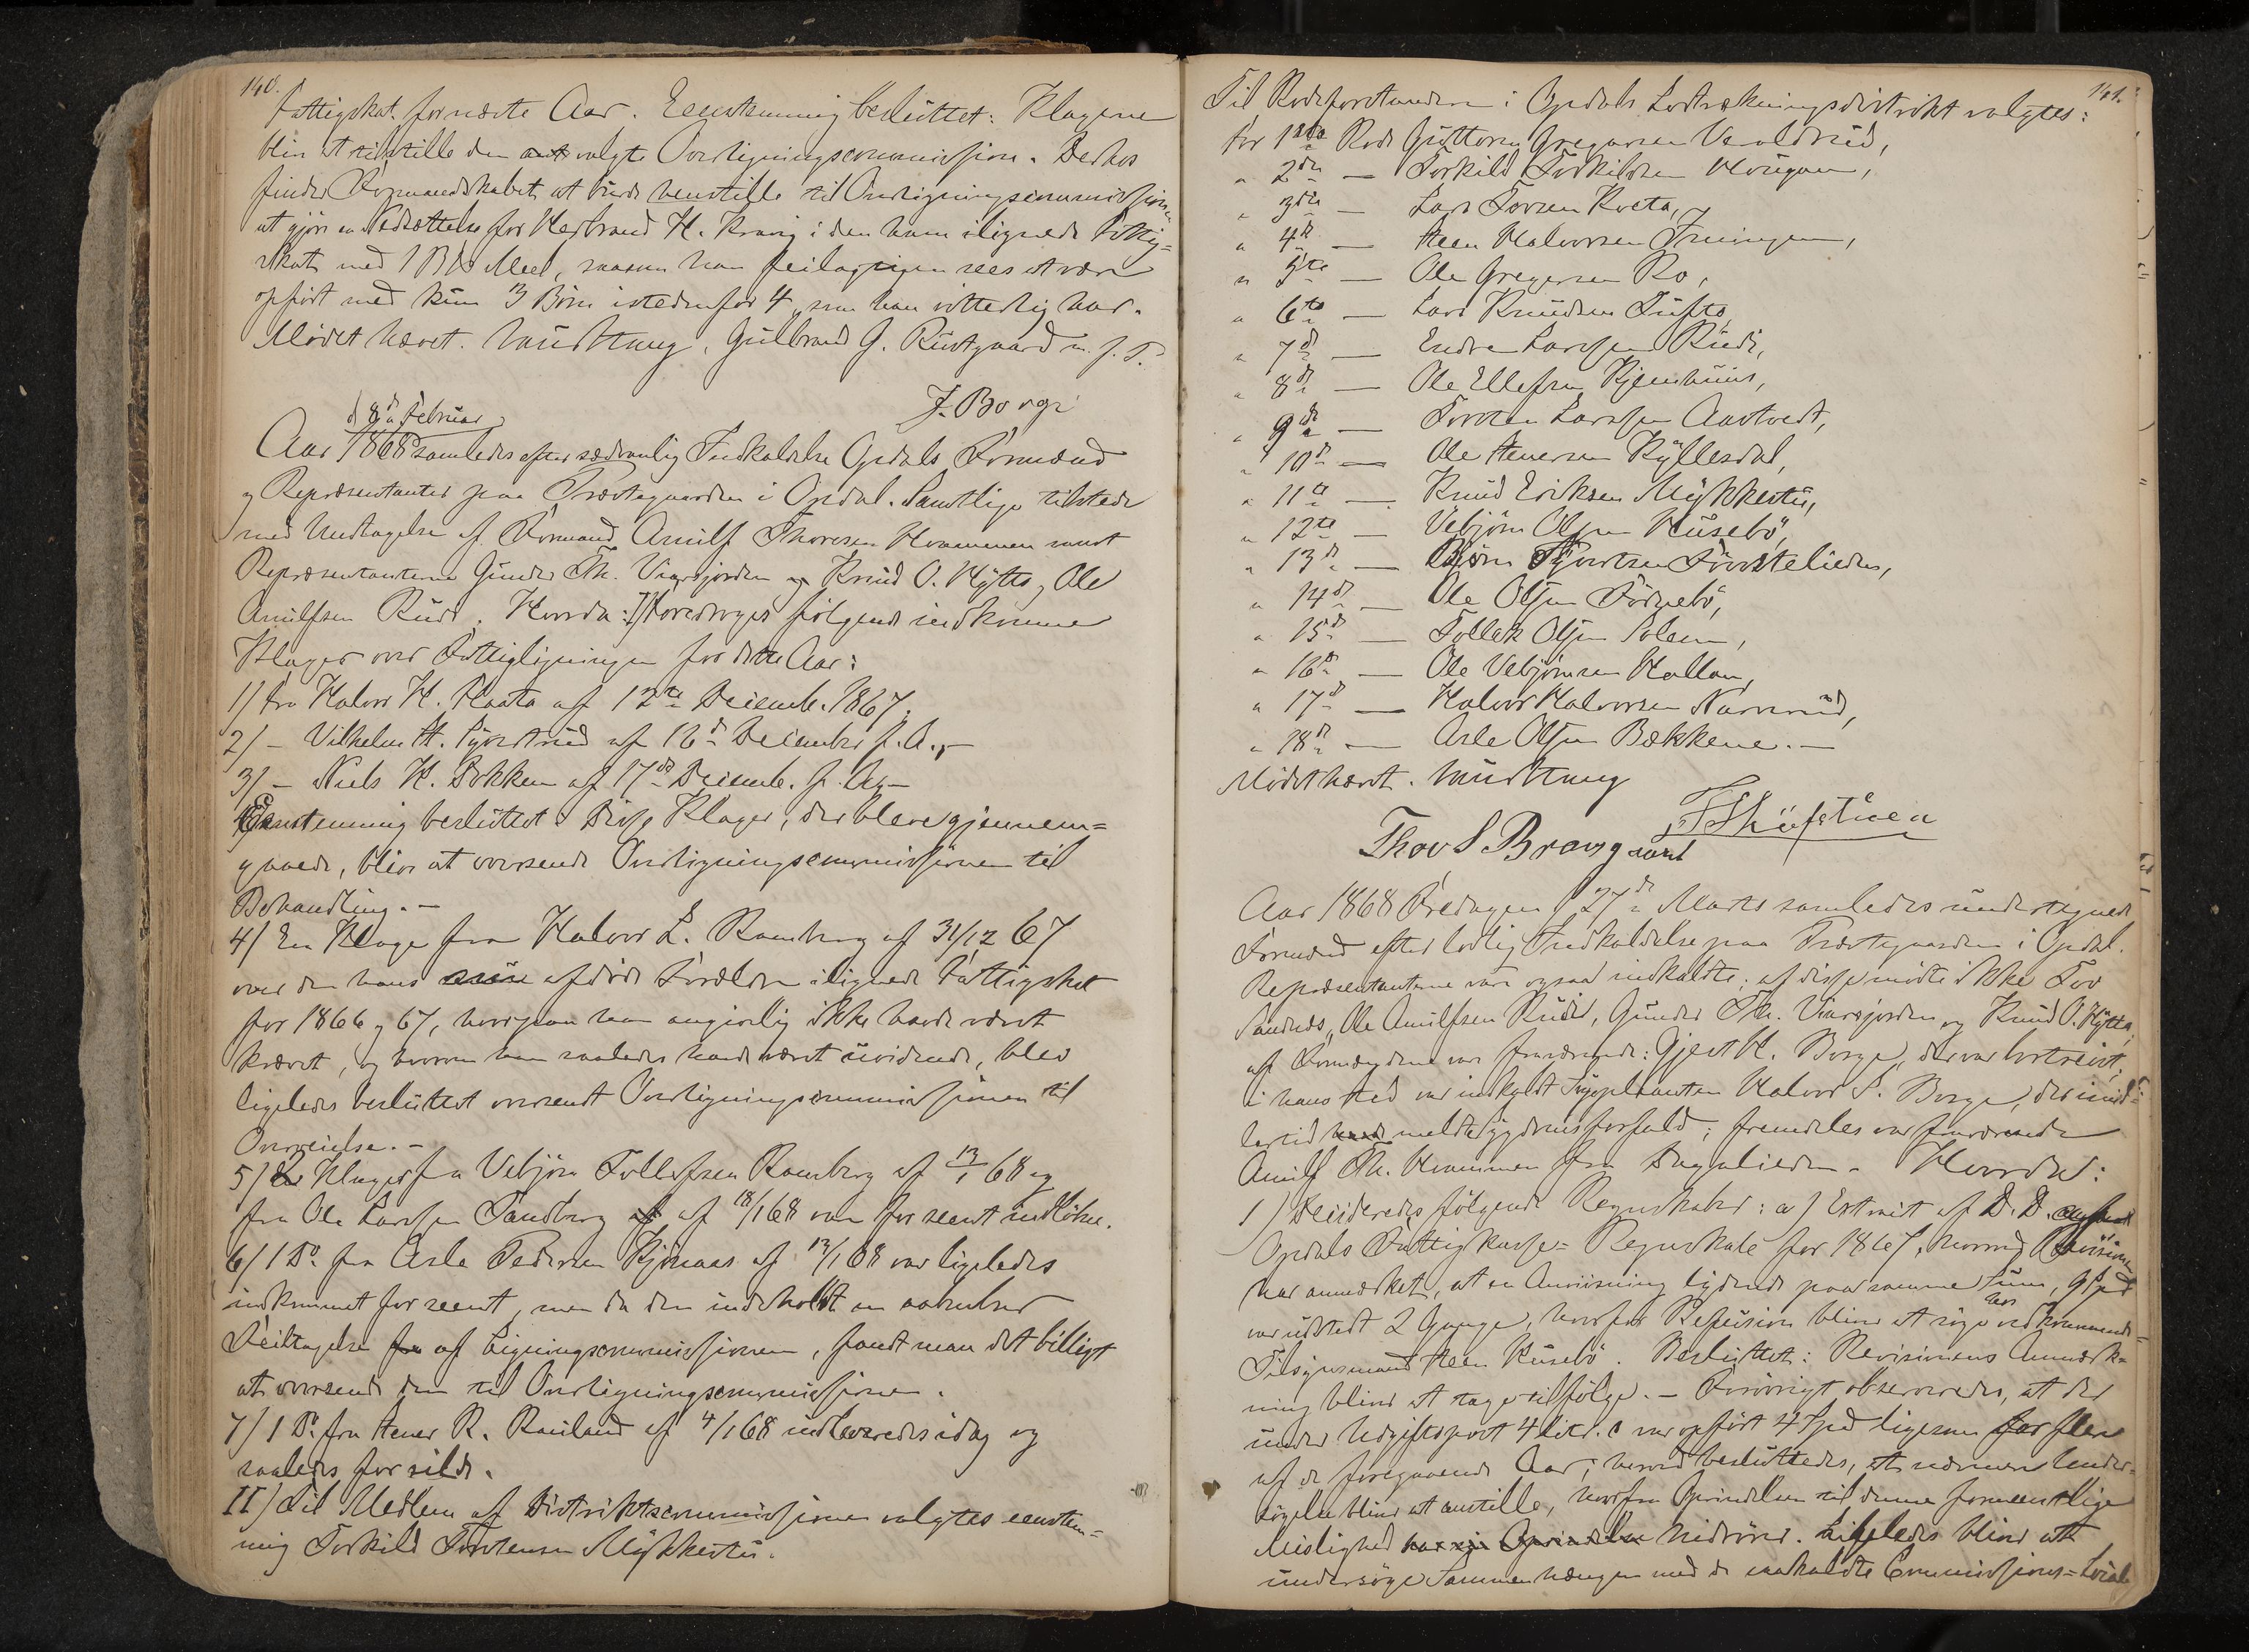 140.
Fattigskat for næste Aar. Eenstemmig besluttet: Klagerne
bliver at tilstille den valgte Overligningscommission. Derhos
finder Formandskabet at burde henstille til Overligningscommissionen
at gjøre en Nedsættelse for Herbrand H. Kravig i den ham ilignede Fattig=
skat med 1 Bd Meel, saasom han feilagtigen sees at være
opført med kun 3 Børn istedenfor 4, som han vitterlig har.
Mødet hævet. Gulbrand G. Rustgaard m. f. P.
J. Borge
d 8de Februar
Aar 1868 samledes efter sædvanlig Indkaldelse Opdals Formænd
og Repræsentanter paa Præstegaarden i Opdal. Samtlige tilstede
med Undtagelse af Formand Arnulf Thoresen Hvammen samt
Repræsentanterne Gunder Th. Viersjorden og Knud O. Hytta, Ole
Arnulfsen Ruud. Hvorda: I) foredroges følgende indkomne
Klager over Fattigligningen for dette Aar:
1) fra Halvor H. Flaata af 12te Decemb. 1867.
2) – Vilhelm H. Sjverstrud af 16de December f. A., –
3) – Niels H. Bakken af 17de Decemb. f. A. –
Eenstemmig besluttet: Disse Klager, der bleve gjennem=
gaaede, bliver at oversende Overligningscommissionen til
Behandling. –
4) En Klage fra Halvor L. Ramberg af 31/12 67
over den hans afdøde Forældre ilignede Fattigskat
for 1866 og 67, hvorpaa han angivelig ikke havde været
krævet, og hvorom han saaledes havde været uvidende, blev
ligeledes besluttet oversendt Overligningscommissionen til
Overveielse. –
5) Klager fra Vebjörn Tollefsen Ramberg af 13/1 68 og
fra Ole Larssen Sandberg af 18/1 68 var for seent indkomne.
6) 1 Do fra Asle Pedersen Kjönaas af 13/1 68 var ligeledes
indkommet for seent, men da den indeholdt en aabenbar
Feiltagelse af Ligningscommissionen, fandt man det billigt
at oversende den til Overligningscommissionen.
7) 1 Do fra Stener R. Rauland af 4/1 68 indleveredes idag og
saaledes for silde.
II) Til Medlem af Districtscommissionen valgtes eenstem=
mig Torkild Torstensen Mykkestu.
141.
Til Rodeforstandere i Opdals Lodtrækningsdistrikt valgtes:
for 1ste Rode Guttorm Gregersen Veraldrud,
" 2den — Torkild Torkildsen Hougen,
" 3die — Lars Torsen Kveta,
" 4de — Steen Halvorsen Fruingen,
" 5te — Ole Gregersen Ro,
" 6te — Lars Knudsen Tufte,
" 7de — Endre Larssen Ruud,
" 8de — Ole Ellefsen Kjemhuus,
" 9de — Torsten Larssen Aastvedt,
" 10de — Ole Stenersen Kyllesdal,
" 11te — Knud Eriksen Mykkestu,
" 12te — Vebjörn Olsen Huseby,
" 13de — Björn Syvertsen Förstelien,
" 14de — Ole Olsen Fornebö,
" 15de — Tollek Olsen Solem,
" 16de — Ole Vebjörnsen Hallan,
" 17de — Halvor Halvorsen Narverud,
" 18de — Asle Olsen Bakkene. –
Mødet hævet.
Thov S Brøvig
Aar 1868 Fredagen d 27de Marts samledes undertegnede
Formænd efter lovlig Indkaldelse paa Præstegaarden i Opdal.
Repræsentanterne vare ogsaa indkaldte; af disse mødte ikke Tov
Sandnes, Ole Arnulfsen Ruud, Gunder Th. Viersjorden og Knud O. Hytta,
af Formændene var fraværende: Gjest H. Borge, der var bortreist;
i hans Sted var indkaldt Suppleanten Halvor S. Borge, der imid=
lertid meldte Sygdomsforfald; fremdeles var fraværende
Arnulf Th. Hvammen fra Dagalieden. Hvorda:
1) Decideredes følgende Regnskaber: a) Extract af D. D.
Opdals Fattigkasse=Regnskab for 1867, hvorved Revisionen
har anmærket, at en Anviisning lydende paa samme Sum,
var udstedt 2 Gange, hvorfor Refusion bliver at søge hos vedkommende
Tilsynsmand Steen Huseby. Besluttet: Revisionens Anmærk=
ning bliver at tage tilfølge. – Forøvrigt observeredes, at der
under Udgiftspost 4 litr. c var opført 4 Spd ligesom for flere
af de foregaaende Aar; herved besluttedes, at nærmere Under=
søgelse bliver at anstille, hvorfra Oprindelsen til denne formeentlige
Mislighed har sin Oprindelse hidrører. Ligeledes bliver at
undersøge Sammenhængen med de saakaldte Commissions=Local